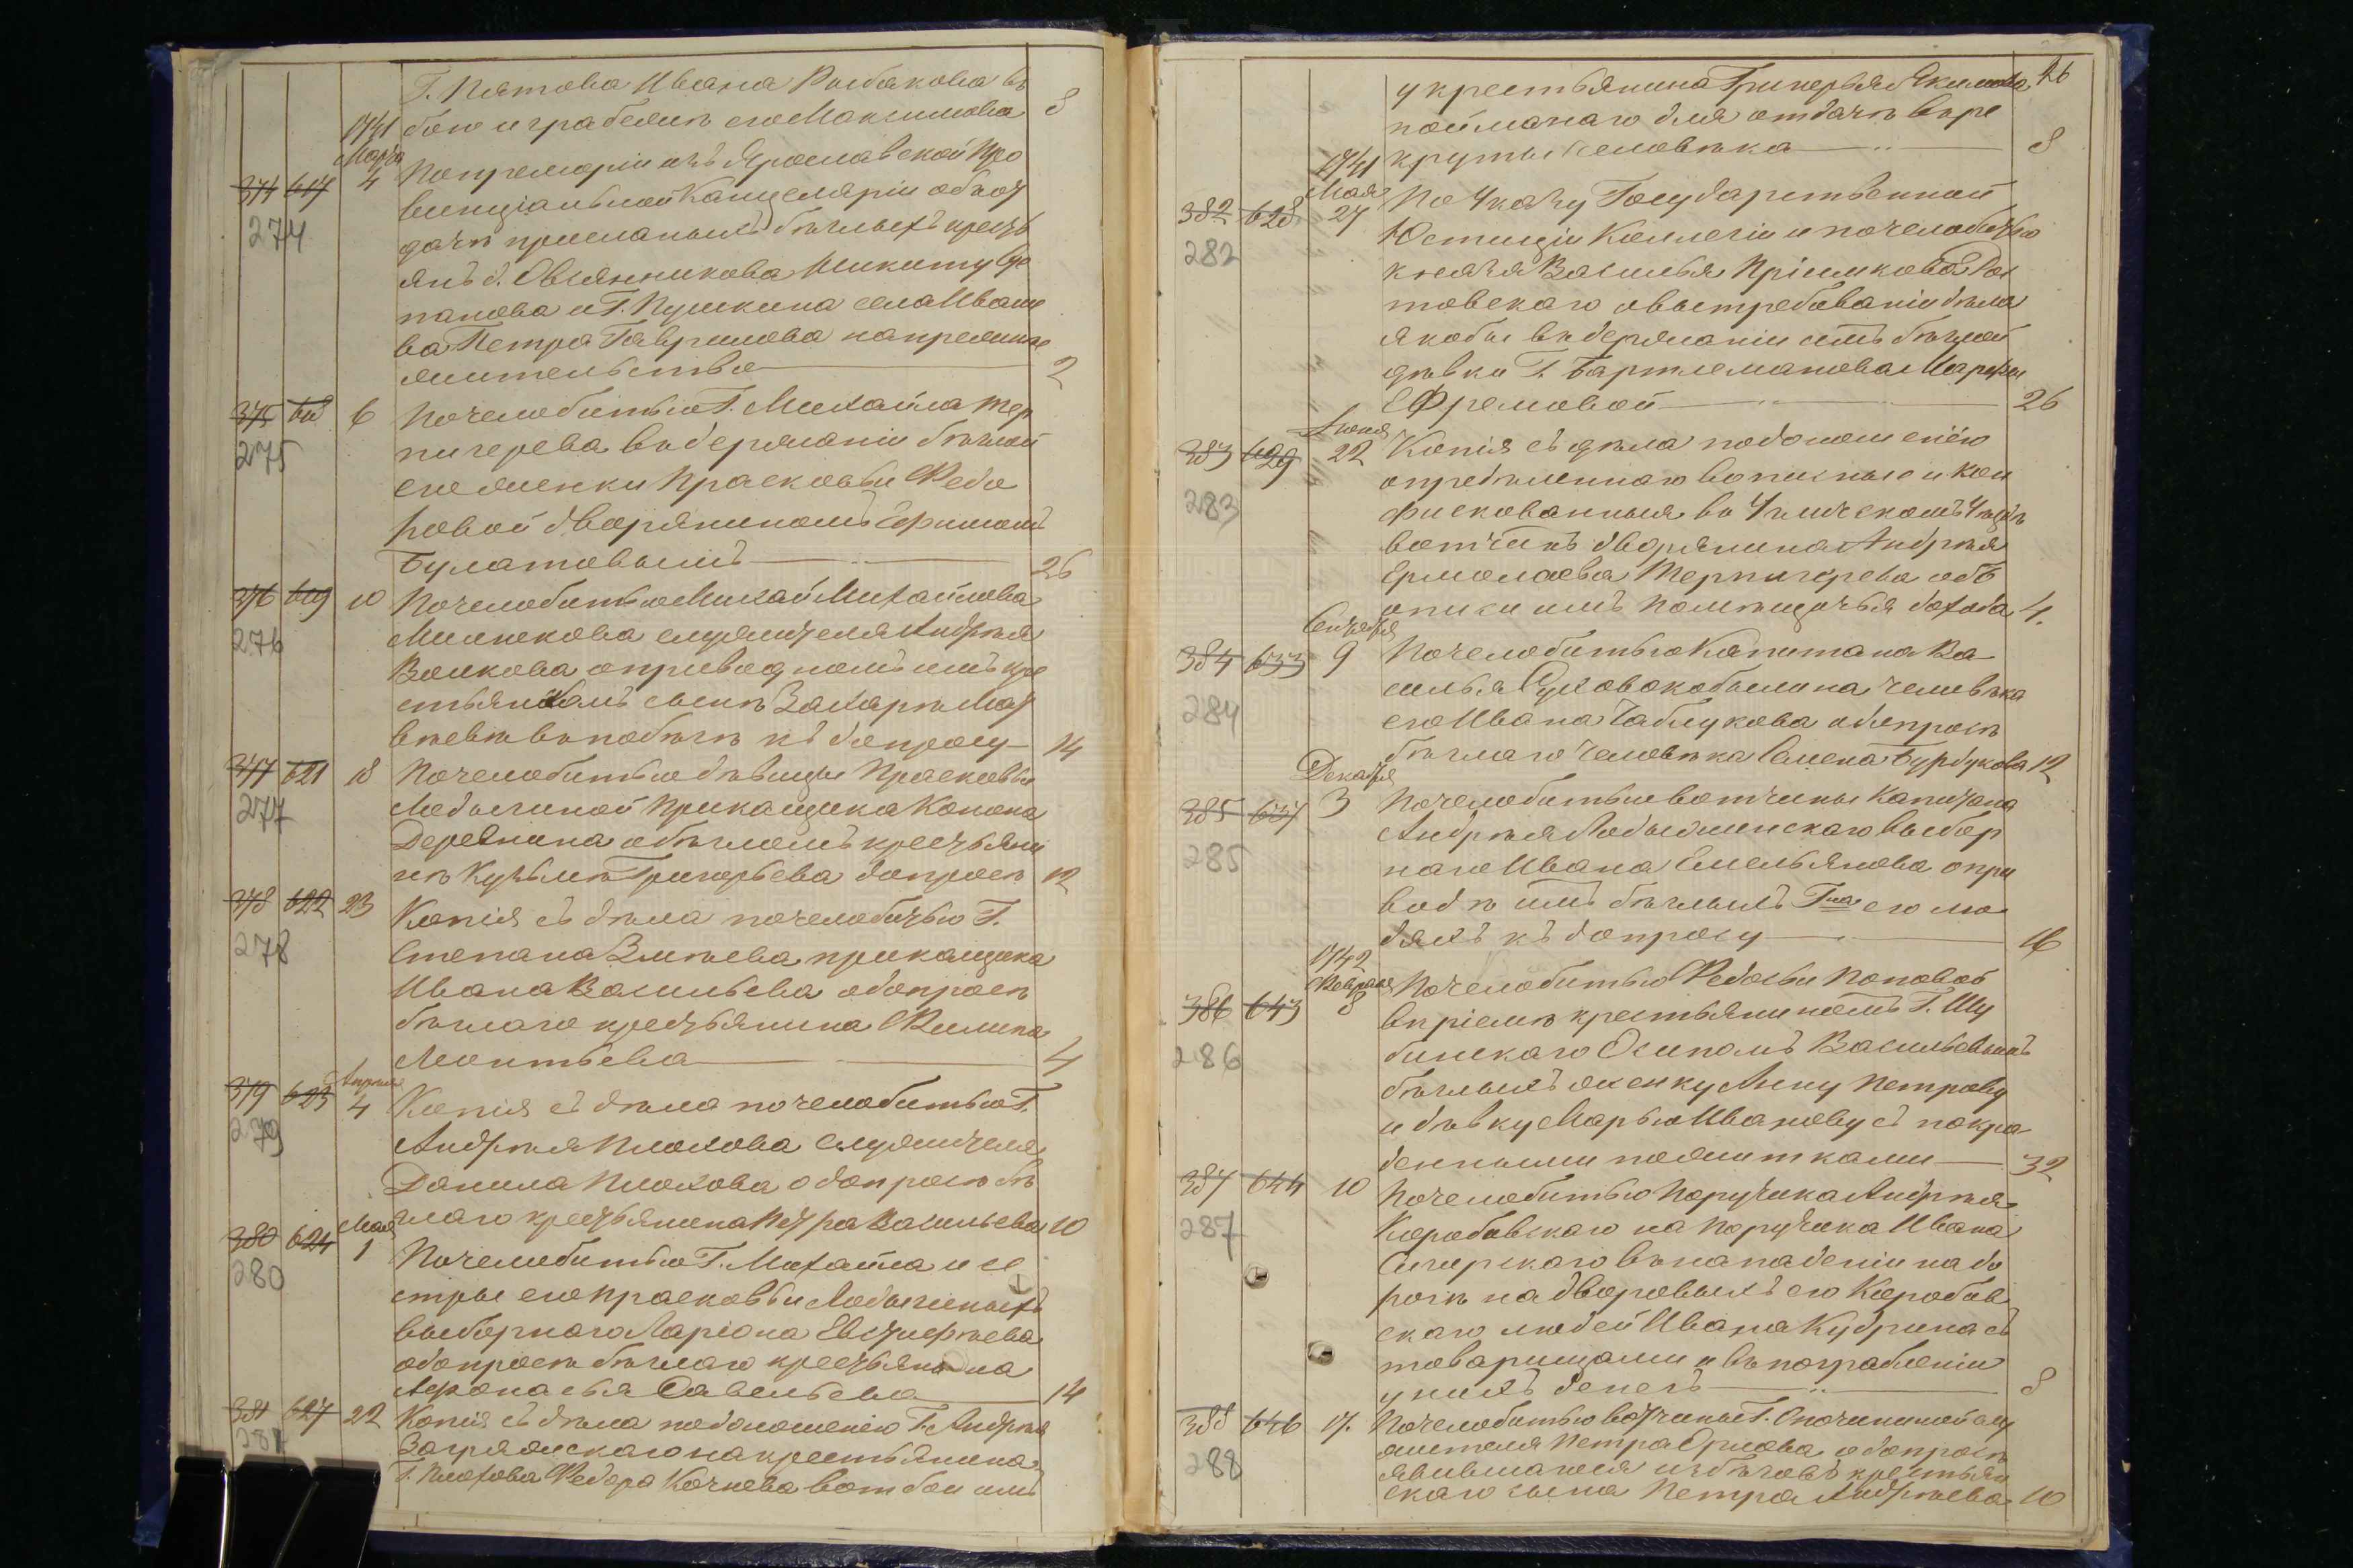 Г. Пятова Ивана Рыбакова въ
1741 бою и грабеже его Максимова 8
Марта
374 617 4 По промеморіи изъ Ярославской Про
винціальной Канцеляріи об от
274
дачѣ присланымъ бѣглыхъ кресть
янъ г. Овсянникова Никиту Сте
панова и Г. Пушкина села Иване
ва Петра Гаврилова на прежнее
жительство 2
375 618 6 По челобитью Г. Михайла Тер
275
пигерева въ держаніи бѣглой
его женки Прасковьи Федо
ровой дворяниномъ Ефимомъ
Булатовымъ 26
376 619 10 По челобитью Михай Михайлова
276
Милюкова служителя Андрея
Волкова о приводномъ имъ кре
стьянскомъ сынѣ Захарѣ Мат
вѣевѣ въ побѣгѣ къ допросу 14
377 621 18 По челобитью дѣвицы Прасковьи
277
Лодыгиной прикащика Конона
Деревнина о бѣгломъ крестьяни
нѣ Кузьмѣ Григорьева допросѣ 12
378 622 23 Копія съ дѣла по челобитью Г.
278
Степана Змѣева прикащика
Ивана Васильева о допросѣ
бѣглаго крестьянина Филипа
Леонтьева 4
Апрѣля
379 623 4 Копія съ дѣла по челобитью Г.
279
Андрея Плохова служителя
Данила Плохова о допросѣ бѣ
глаго крестьянина Петра Васильева 10
Мая
380 624 1 По челобитью Г. Михайла и се
280
стры его Прасковьи Лодыгиныхъ
выборнаго Ларіона Евстифѣева
о допросѣ бѣглаго крестьянина
Афонасья Савельева 14
381 627 22 Копія съ дѣла по доношенію Г. Андрея
281
Загряжскаго на крестьянина
Г. Плохова Федора Кочнева въ отбои имъ
у крестьянина Григорья Якимова 26
пойманаго для отдачи въ ре
круты человѣка 8
1741
Мая
382 628 27 По Указу Государственной
282
Юстиціи Коллегіи и по челобитью
князя Василья Пріимкова Рос
товскаго о вытребованіи дѣла
якобы въ держаніи имъ бѣглой
дѣвки Г. Бартлеманова Марфы
Ефремовой 26
Іюня
383 629 22 Копія съ дѣла по доношенію
283
опредѣленнаго въ описные и кон
фискованныя въ Угличскомъ Уѣздѣ
вотчинѣ дворянина Андрея
Ермолаева Терпигорева объ
описи имъ помѣщичья дохода 4.
Сентября
384 633 9 По челобитью Капитана Ва
284
силья Сухово кобылина человѣка
его Ивана Чаблукова о допросѣ
бѣглаго человѣка Семена Бурдукова 12
Декабря
385 637 3 По челобитью вотчины Капитана
285
Андрея Лодыженскаго выбор
наго Ивана Емельянова о при
водѣ имъ бѣглыхъ Г-на его лю
дяхъ къ допросу 16
1742
Февраля
386 643 8 По челобитью Федосьи Поповой
286
въ пріемѣ крестьяниномъ Г. Шу
бинскаго Осипомъ Васильевымъ
бѣглыхъ женку Анну Петрову
и дѣвку Марью Иванову съ покра
денными пожитками 32
387 644 10 По челобитью Поручика Андрея
287
Коробовскаго на Поручика Ивана
Сигерскаго въ нападеніи на до
рогѣ на дворовыхъ его Коробов
скаго людей Ивана Кудрина съ
товарищами и въ пограбленіи
у нихъ денегъ 8
388 646 17. По челобитью вотчины Г. Опочининой слу
288
жителя Петра Орлова о допросѣ
явившагося изъ бѣговъ крестьян
скаго сына Петра Андрѣева 10